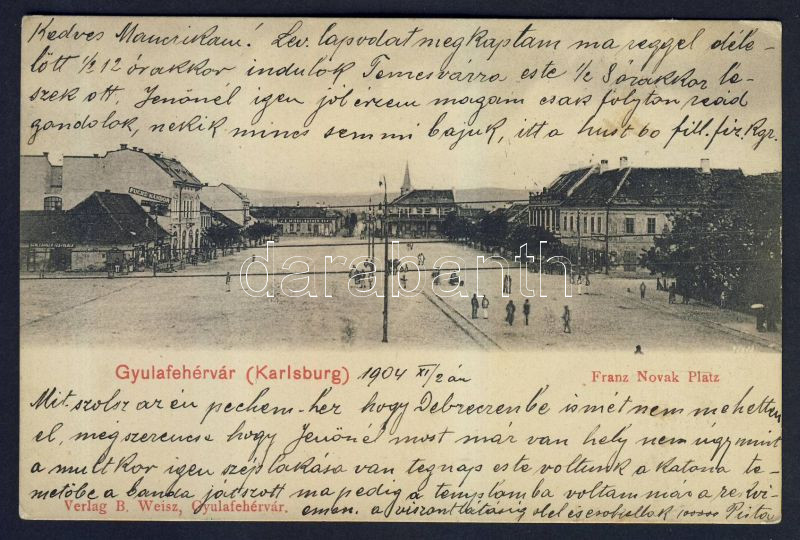 Kedves Mamrikam! Lev. lapodat megkaptam ma reggel déle-
lőtt ½ 12 órakkor indulok Temesvárra este ½ 8 órakkor le-
szek ott. Jenőnél igen jól érzem magam csak folyton reád
gondolok, nekik mincs semmi bajuk, itt a hust 60 fill. fiz. kgr.
darabanth
Gyulafehérvár (Karlsburg) 1904 XI/2 án
Franz Novak Platz
Mit szolsz az én pechem-hez hogy Debreczenbe ismét nem mehettem
el, még szerencse hogy Jenőnél most már van hely nem úgy mint
a multkor igen szép lakása van tegnap este voltunk a katona te-
metőbe a banda játszott ma pedig a templomba voltam már a rekvi-
Verlag B. Weisz, Gyulafehérvár.
emen. a viszontlátásig ölel és csokollak 100000 Pista